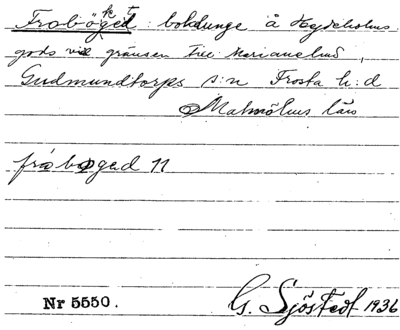 Fraböged: bokdunge å Hydeholms
gods vid gränsen till Marianelund,
Gudmundtorps s:n Frosta h:d
Malmöhus län
frabøged 11
Nr 5550.
G. Sjöstedt 1936